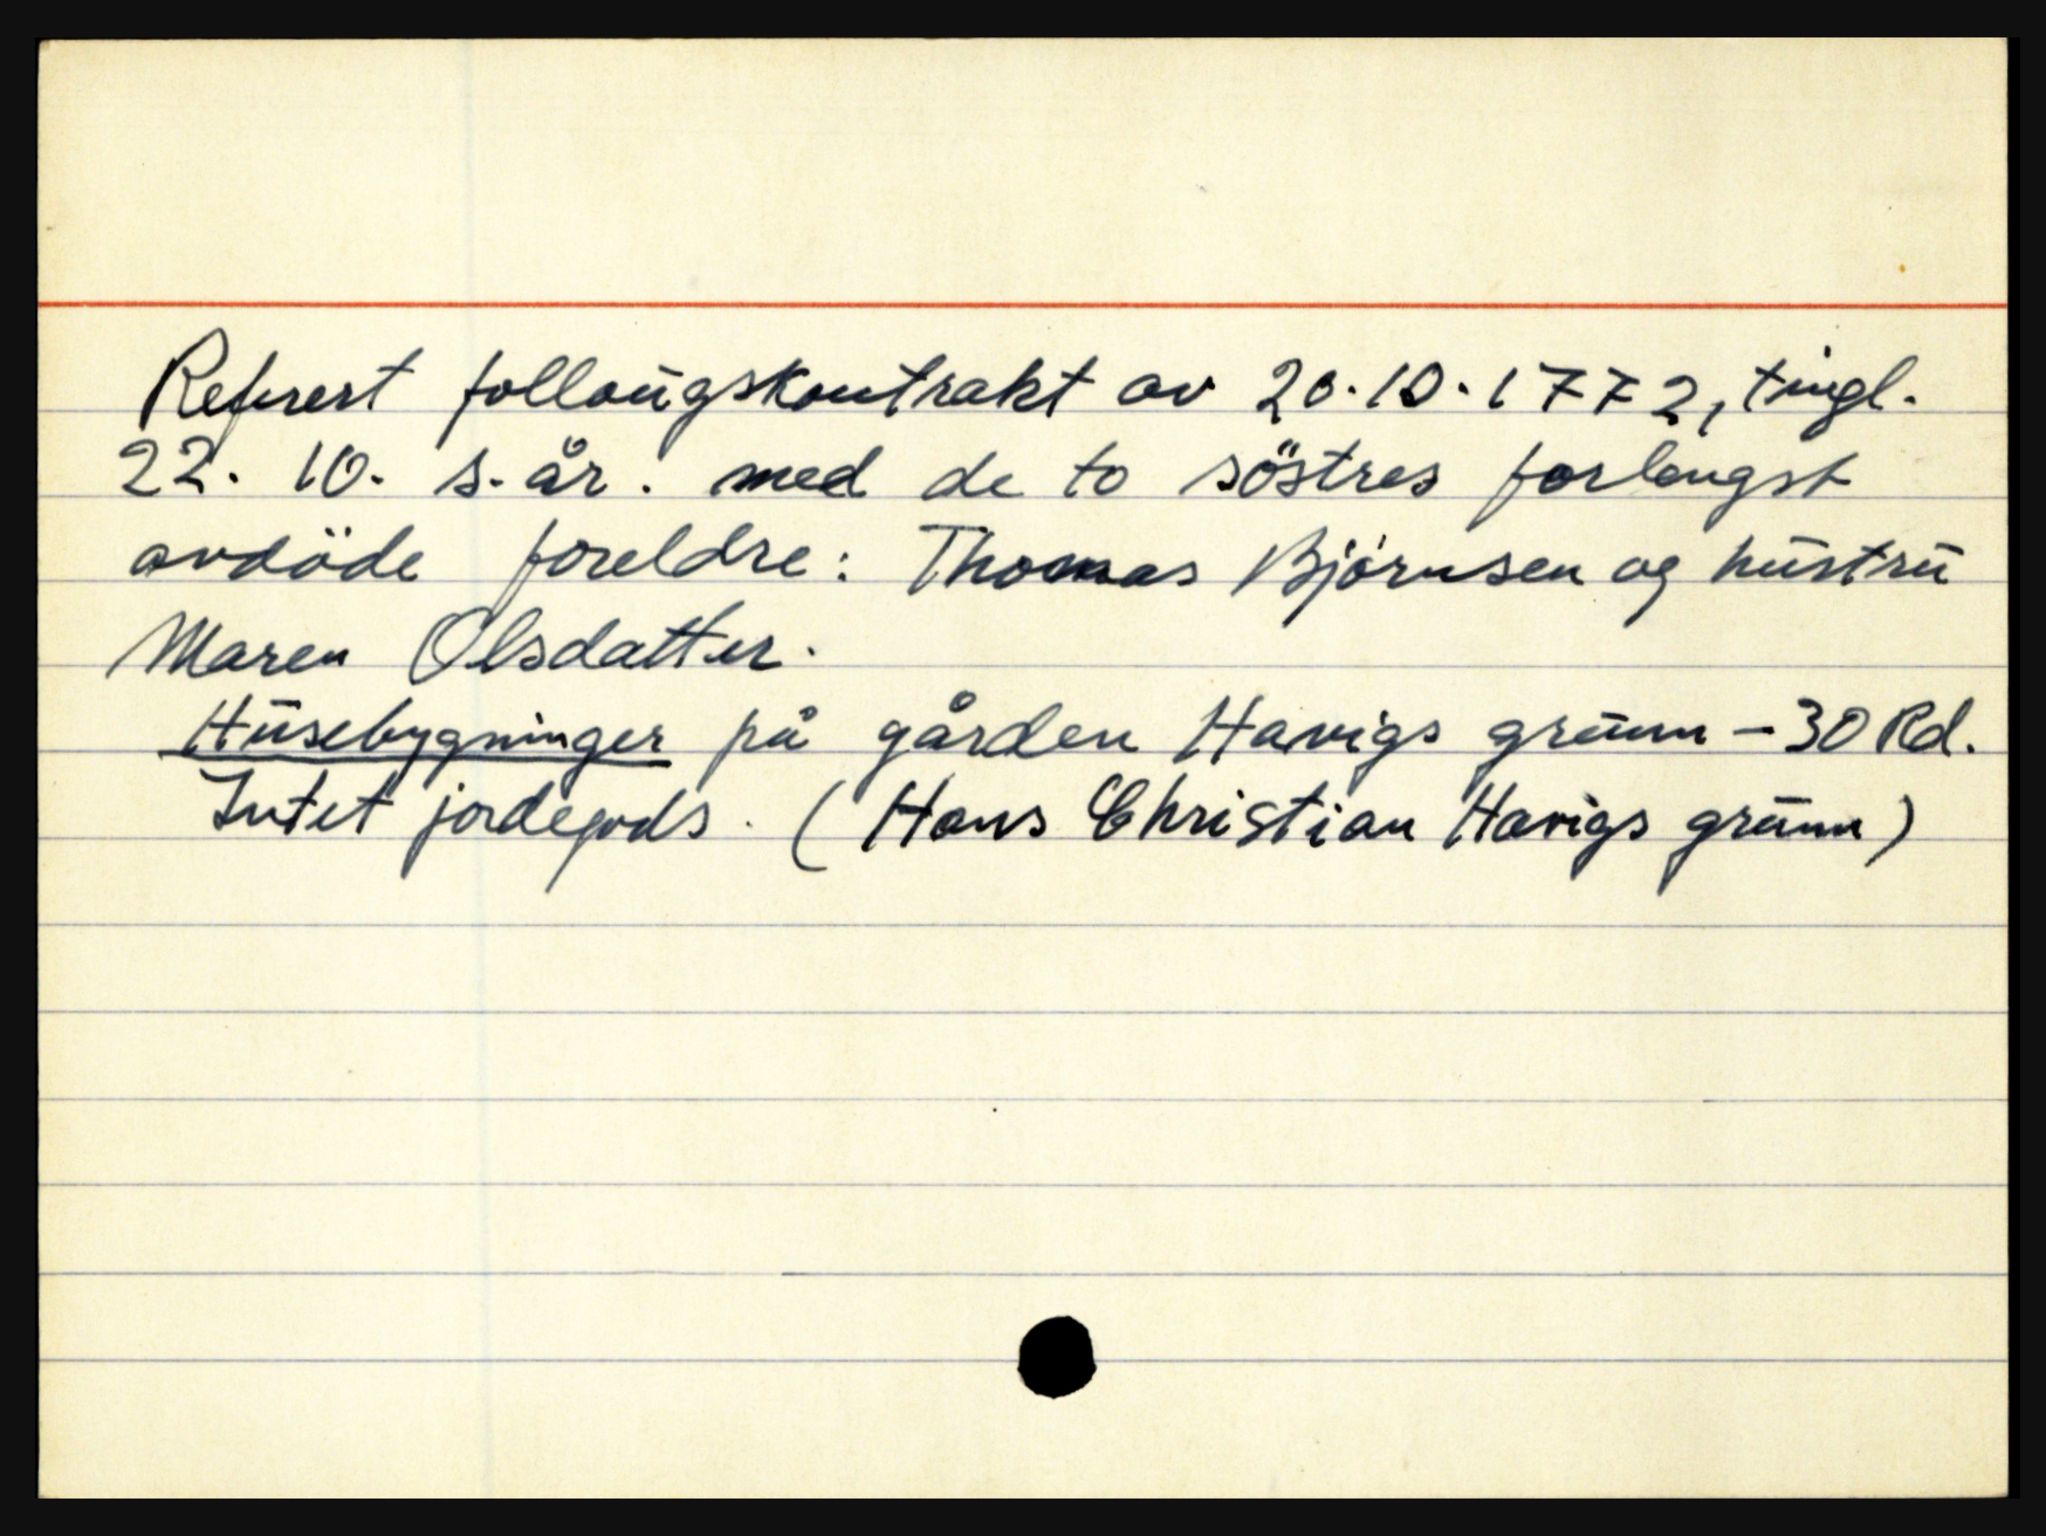 Referert follaugskontrakt av 20.10.1772, tingl.
22. 10. s. år. med de to söstres forlengst
avdöde foreldre: Thomas Bjørnsen og hustru
Maren Olsdatter.
Husebygninger på gården Havigs grunn - 30 Rd.
Intet jordegods. (Hans Christian Havigs grunn)